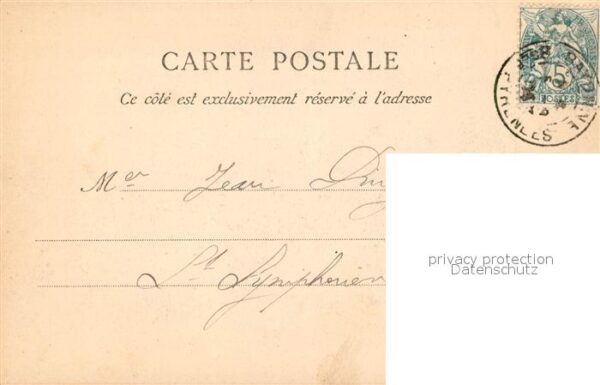 CARTE POSTALE
Ce côté est exclusivement réservé à l'adresse
Mr Jean
St Symphorien
privacy protection
Datenschutz
5
POSTES